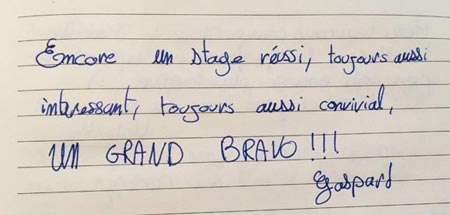 Encore un stage réussi, toujours aussi
intéressant, toujours aussi convivial,
UN GRAND BRAVO !!!
Gaspard